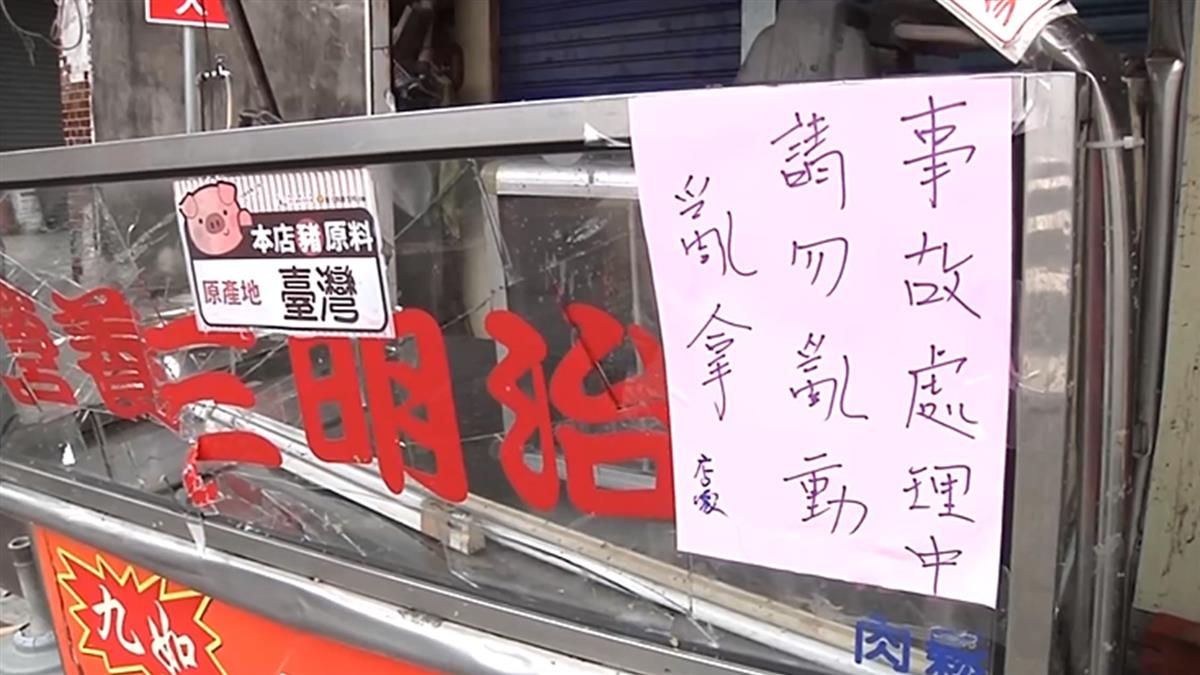 事故處理中
請勿亂動
亂拿
店家
本店豬原料
原產地 臺灣
營養三明治
九如
肉